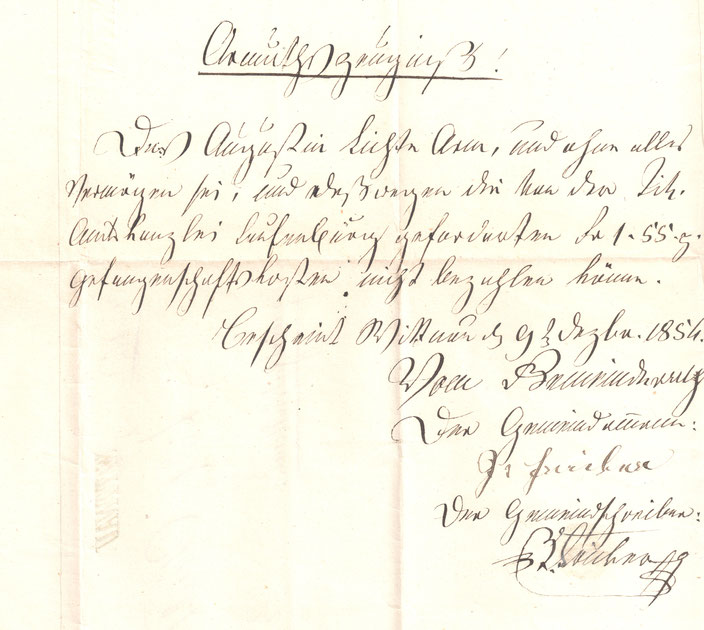 Armuthszeugniß!
Daß Augustin Lichte Arm, und ohne alles
Vermögen sei, und deßwegen die von der Tit.
Amtskanzlei Laufenburg geforderten Fr 1. 55.
Gefangenschaftskosten nicht bezahlen könne.
Bescheint Wittnau d 9t Dezbr. 1854.
Vom Gemeindrath
Der Gemeindammann:
Fricker
Der Gemeindschreiber: